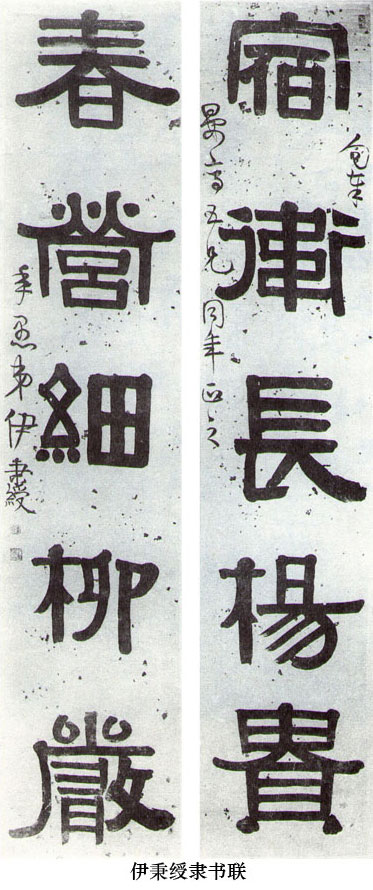 宿衛長楊貴
五兄同年正之
春營細柳嚴
年愚弟伊秉綬
伊秉绶隶书联